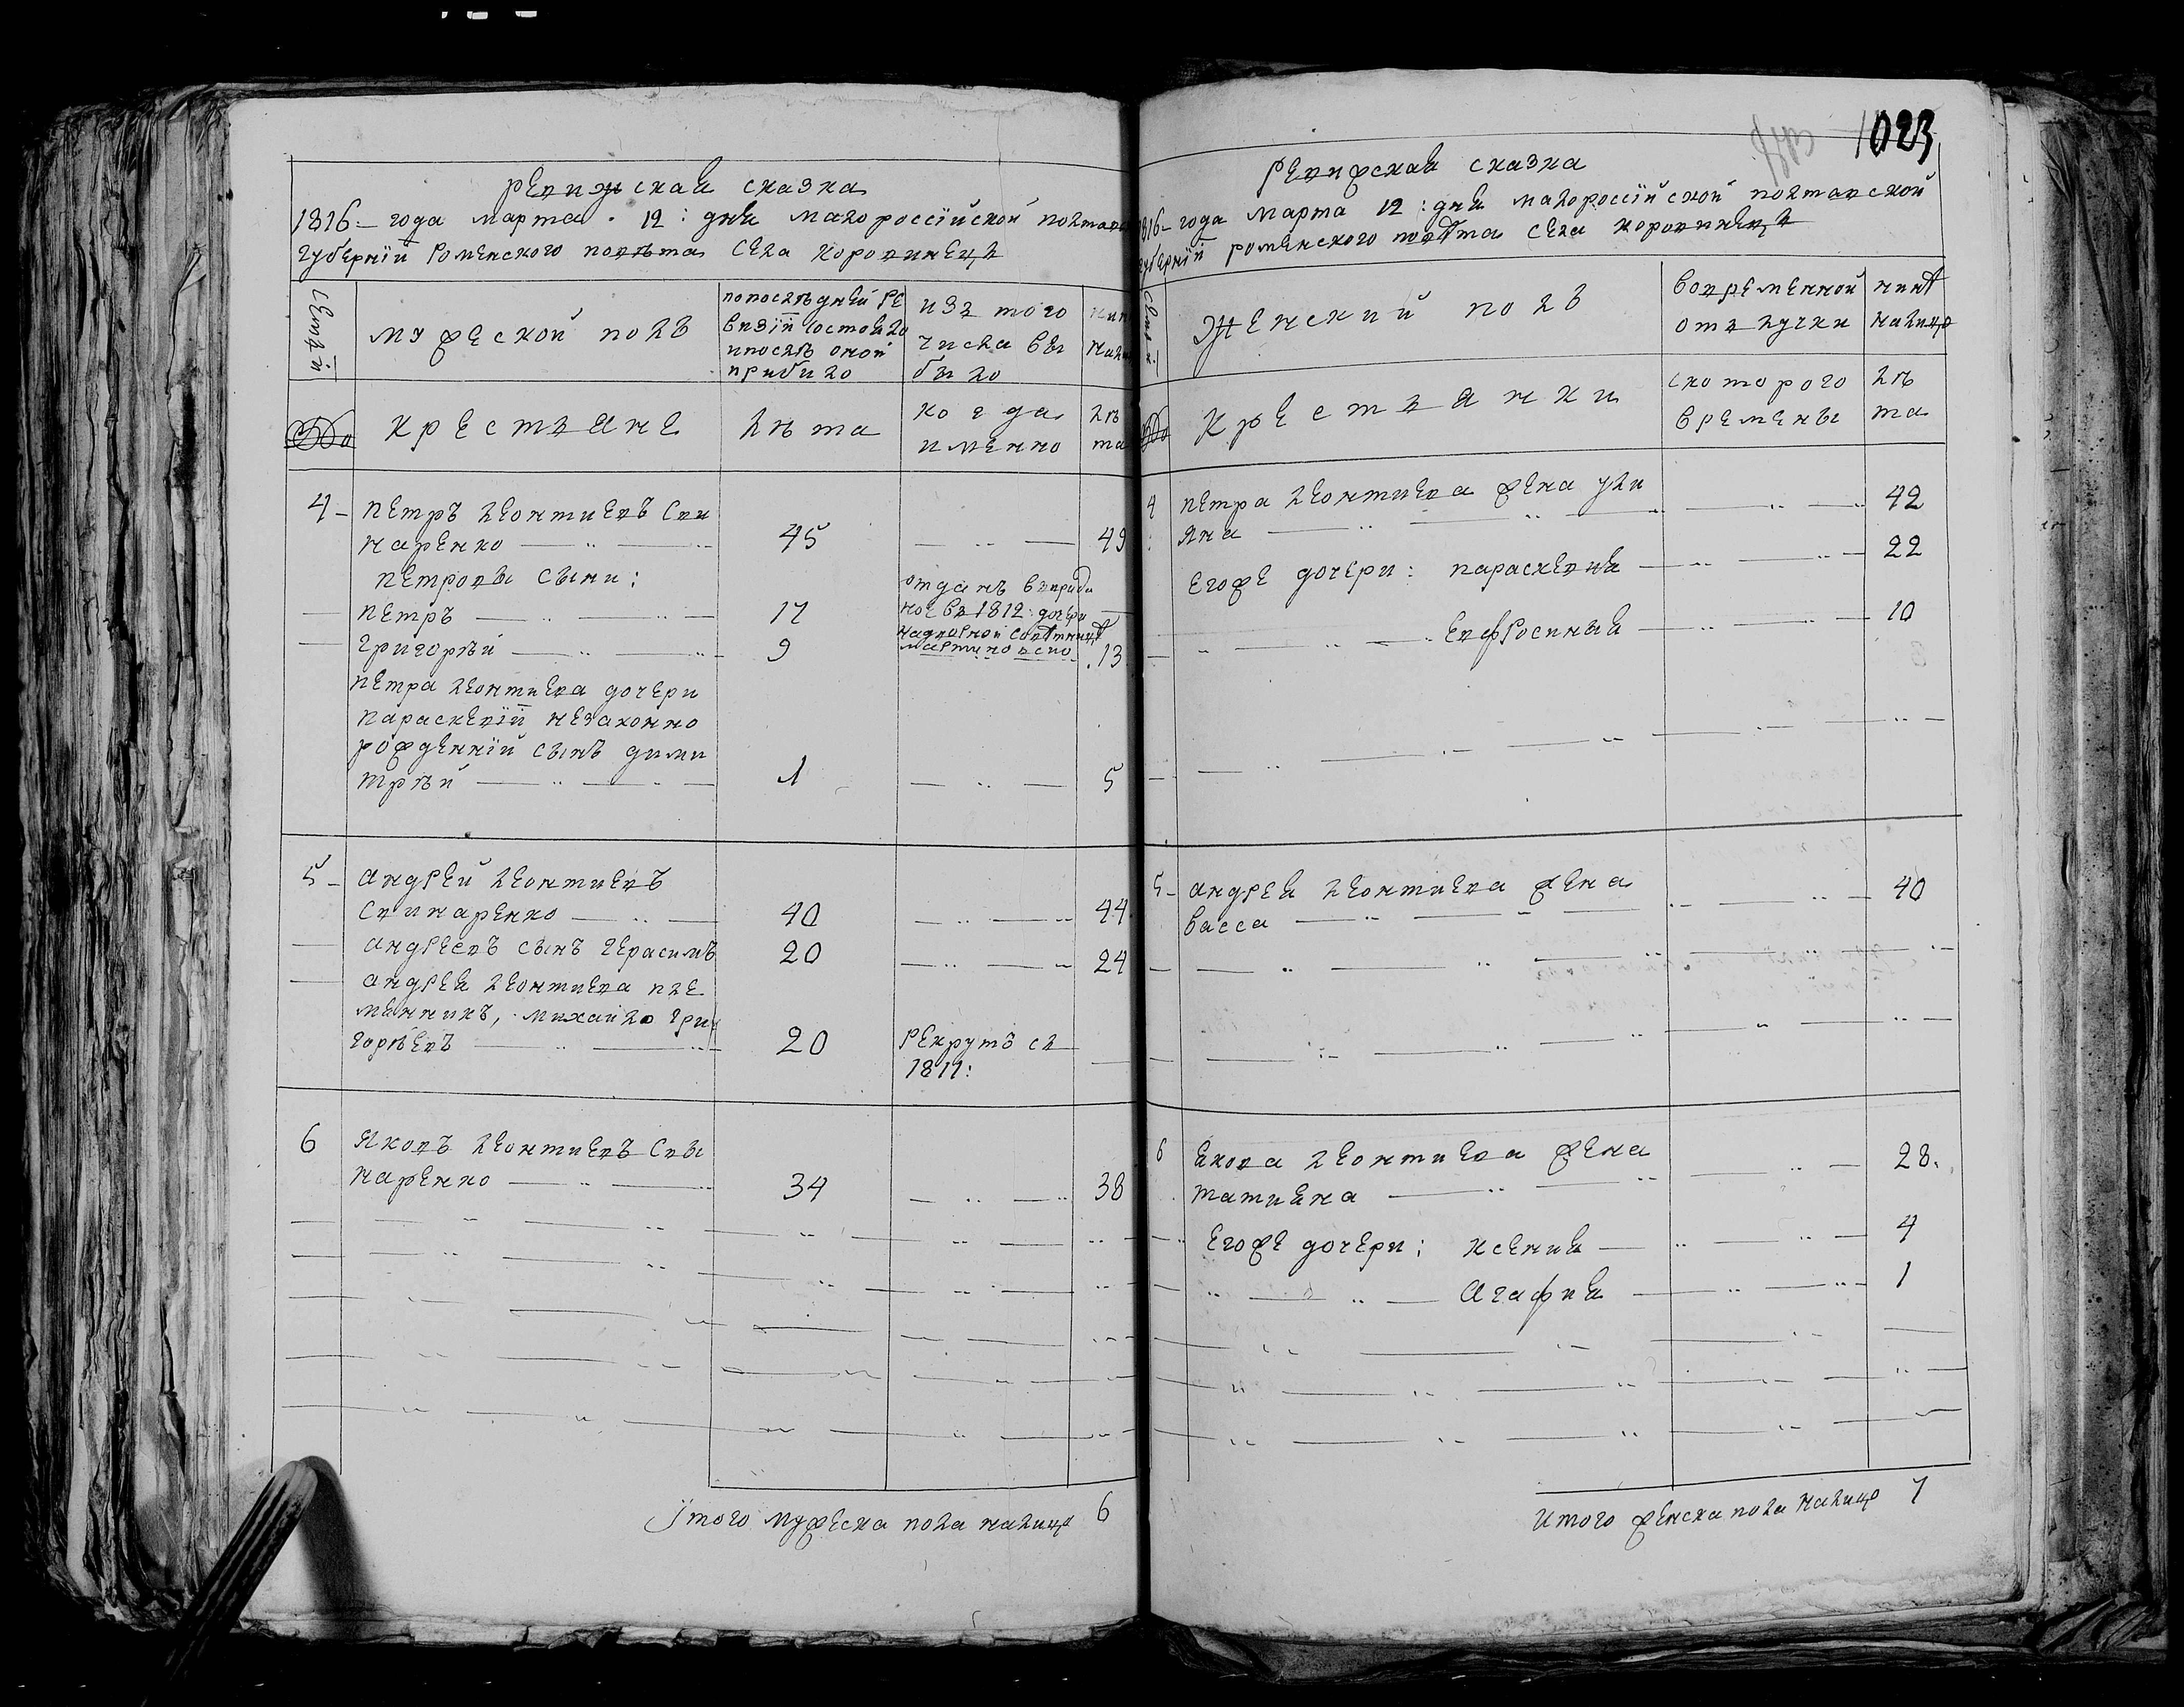 Ревижская сказка
1816 – года марта . 12 : дня малороссїйской полтавс
губернїи Роменского повѣта села коровинецъ
семей
мужеской полъ
попослѣдней ре
визїи состояло
ипослѣ оной
прибило
изъ того
числа вы
было
нин
нали
№
крестъяне
лѣта
когда
именно
лѣ
та
4 – Петръ Леонтиевъ Сви
наренко — 45 — 49
Петровы сыни :
Петръ — 17 отданъ въприда
ное въ 1812 : дочери
надворной совѣтницѣ
Григорѣй — 9 — 13
Петра Леонтиева дочери
Параскевїи незаконно
рожденнїй сынъ Дими
трѣй — 1 — 5
5 – Андрей Леонтиевъ
Свинаренко — 40 — 44
Андреевъ сынъ Герасимъ 20 — 24
Андрея Леонтиева пле
менникъ, Михайло Гри
горѣевъ — 20 Рекрутъ съ
1811 :
6 Яковъ Леонтиевъ Свы
наренко — 34 — 38
Їтого мужеска пола налицо 6
1023
Ревижская сказка
1816 – года марта 12 : дня малороссїйской полтавской
губернїи роменского повѣта села коровинецъ
семей
Женский полъ
вовременной
отълучки
нинѣ
налицо
№
Крестъянки
скоторого
времены
лѣ
та
4 Петра Леонтиева жена Ули
яна — 42
Егоже дочери : Параскевия — 22
Евфросиния — 10
5 – Андрея Леонтиева жена
Васса — 40
6 Якова Леонтиева жена
Татияна — 28.
Егоже дочери ; Ксения — 4
Агафия — 1
Итого женска пола налицо 7